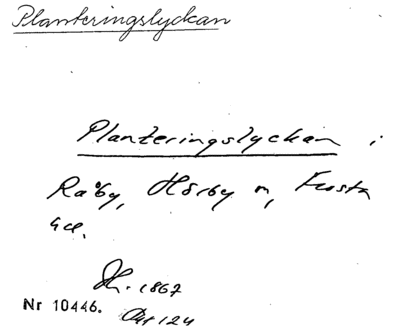 Planteringslyckan
Planteringslyckan i
Råby, Hörby sn, Frosta
hd.
1867
Nr 10446.
Akt 124